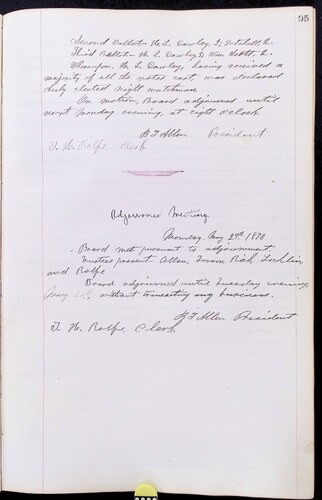 95
Second Ballot - H. L. Dawley, 3; Mitchell, 2.
Third Ballot - H. L. Dawley 3; Wm 2.
Whereupon, H. L. Dawley, having received a
majority of all the votes cast, was declared
duly elected night watchman.
On motion, Board adjourned until
next Monday evening, at eight o'clock
B F Allen President
T. H. Rolfe, Clerk
Adjourned Meeting
Monday, May 23d, 1870
Board met pursuant to adjournment,
present Allen, Rich
and Rolfe
Board adjourned until Tuesday evening
May without transacting any business.
B F Allen President
T. H. Rolfe, Clerk.